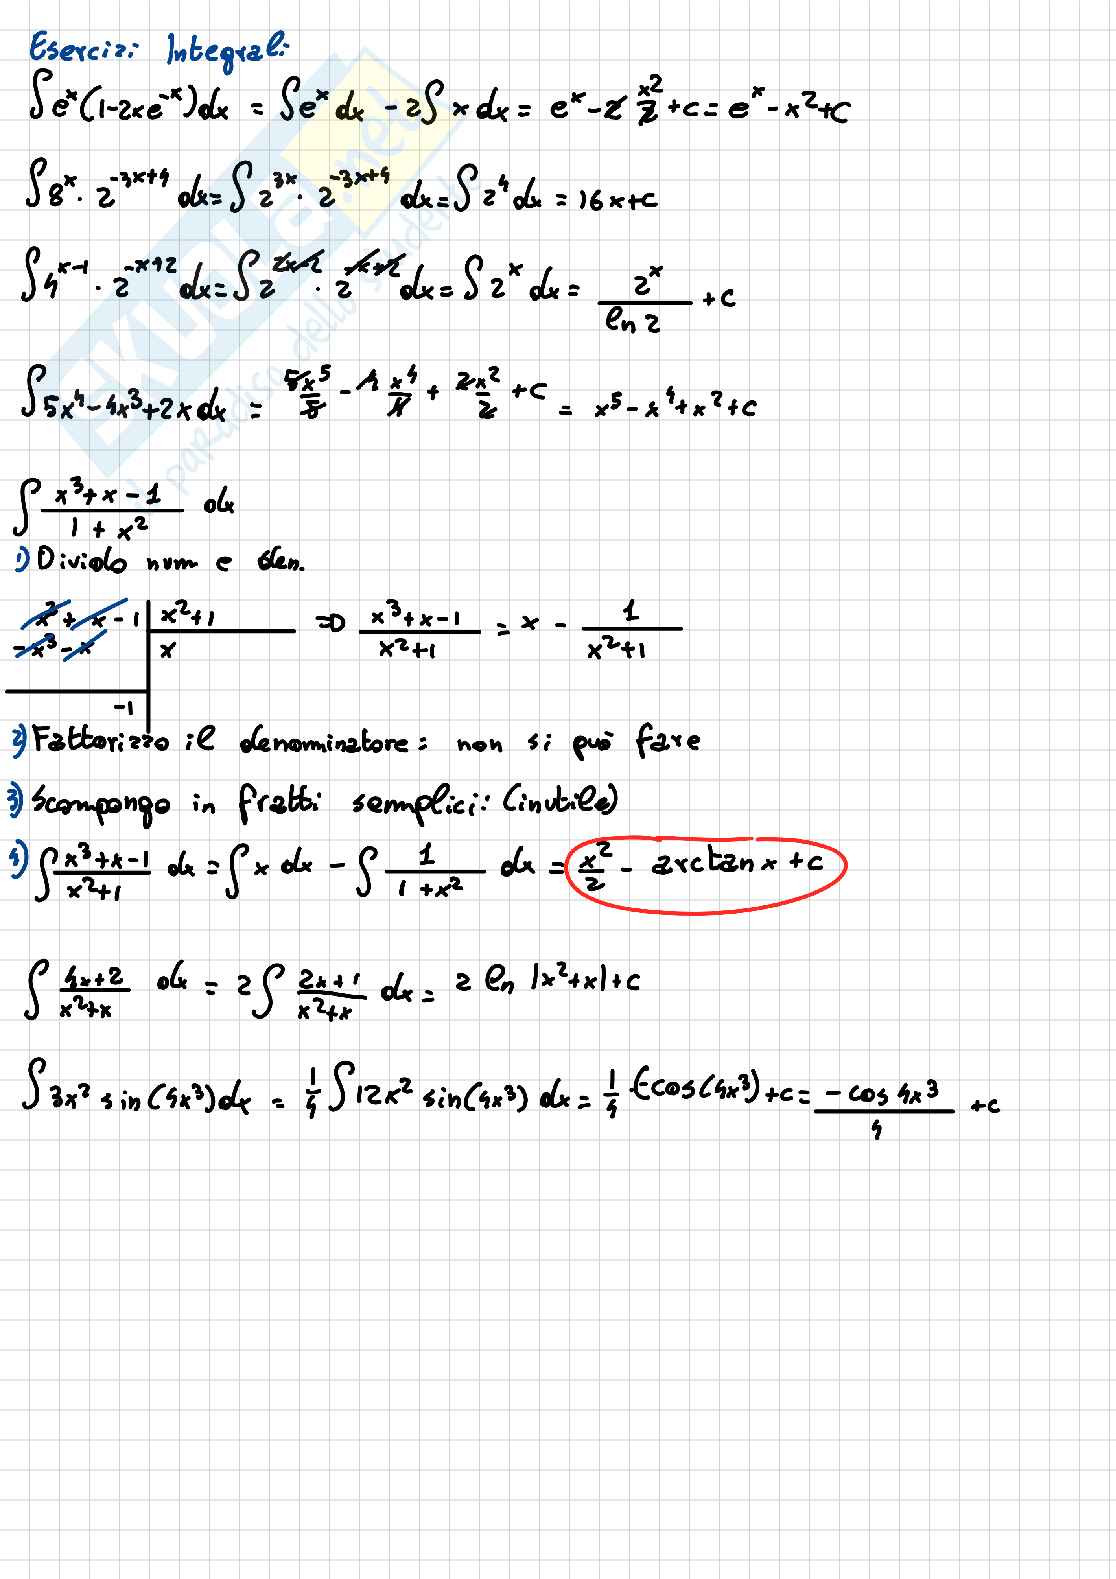 Esercizi Integrali
∫ e^x (1-2xe^-x) dx = ∫ e^x dx - 2∫ x dx = e^x - 2 x^2/2 + c = e^x - x^2 + c
∫ 8^x · 2^(-3x+4) dx = ∫ 2^(3x) · 2^(-3x+4) dx = ∫ 2^4 dx = 16x + c
∫ 4^(x-1) · 2^(-x+2) dx = ∫ 2^(2x-2) · 2^(-x+2) dx = ∫ 2^x dx = 2^x/ln 2 + c
∫ 5x^4 - 4x^3 + 2x dx = 5x^5/5 - 4 x^4/4 + 2x^2/2 + c = x^5 - x^4 + x^2 + c
∫ (x^3 + x - 1)/(1 + x^2) dx
1) Divido num e den.
x^3 + x - 1 | x^2 + 1 => (x^3 + x - 1)/(x^2 + 1) = x - 1/(x^2 + 1)
-x^3 - x | x
-1
2) Fattorizzo il denominatore: non si può fare
3) Scompongo in fratti semplici: (inutile)
4) ∫ (x^3 + x - 1)/(x^2 + 1) dx = ∫ x dx - ∫ 1/(1 + x^2) dx = x^2/2 - arctan x + c
∫ (4x + 2)/(x^2 + x) dx = 2∫ (2x + 1)/(x^2 + x) dx = 2 ln |x^2 + x| + c
∫ 3x^2 sin(4x^3) dx = 1/4 ∫ 12x^2 sin(4x^3) dx = 1/4 · (-cos(4x^3) + c = -cos 4x^3/4 + c
SKUOLA.net
il paradiso dello studente